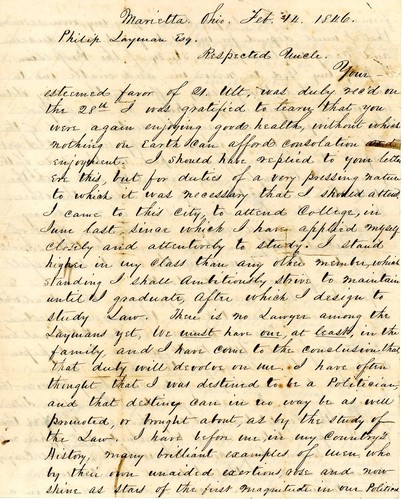 Marietta, Ohio, Feb. 1846.
Philip Layman Esq.
Respected Uncle.
Your
esteemed favor of 21. Ult, was duly rec'd on
the 28th I was gratified to learn that you
were again enjoying good health, without which
nothing on Earth can afford consolation
enjoyment. I should have replied to your letter
ere this, but for duties of a very pressing nature
to which it was necessary that I should attend
I came to this City, to attend College, in
June last since which I have applied myself
closely and attentively to study. I stand
higher in my Class than any other member, which
standing I shall Ambitiously strive to maintain
until I graduate, after which I design to
study Law. There is no Lawyer among the
Laymans yet, We must have one, at least, in the
family, and I have come to the conclusion that
that duty will devolve on me. I have often
thought that I was destined to be a Politician,
and that destiny can in no way be as well
promoted, or brought about, as by the study of
the Law. I have before me, in my Country's
History, many brilliant examples of men, who
by their own unaided exertions, rose and now
shine as stars of the first magnitude in our Political